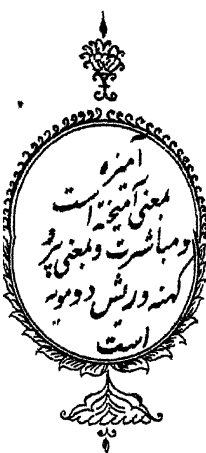 آمیزه
بمعنی آمیخته است
و مباشرت و بمعنی پیر
کهنه و ریش دومویه
است